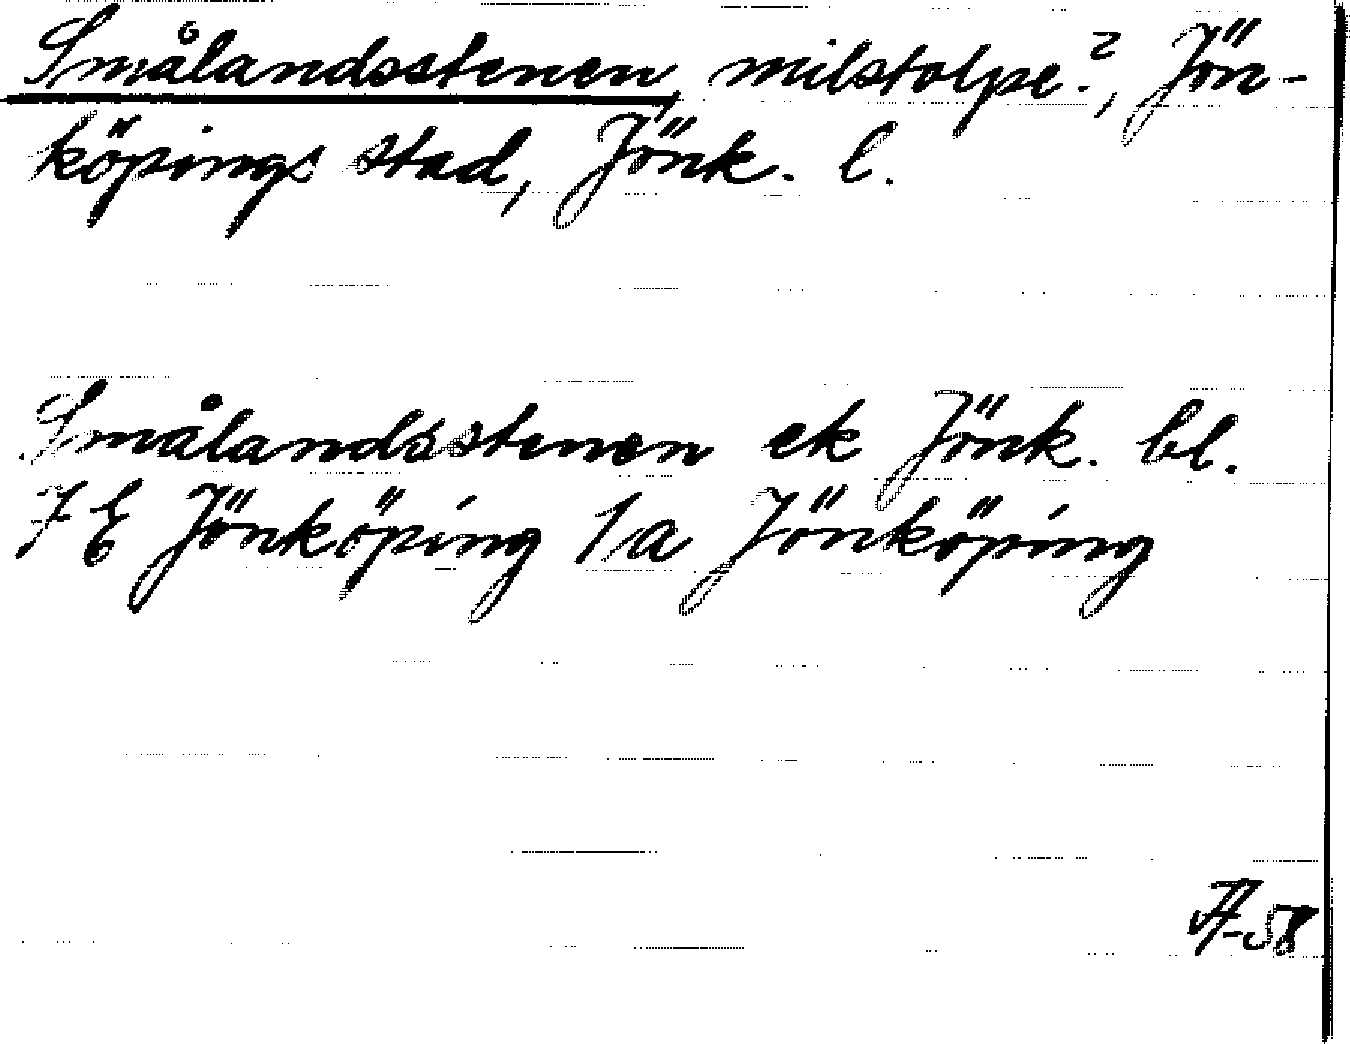 Smålandsstenen, milstolpe?, Jön-
köpings stad, Jönk. l.
Smålandsstenen ek Jönk. bl.
7 E Jönköping 1a Jönköping